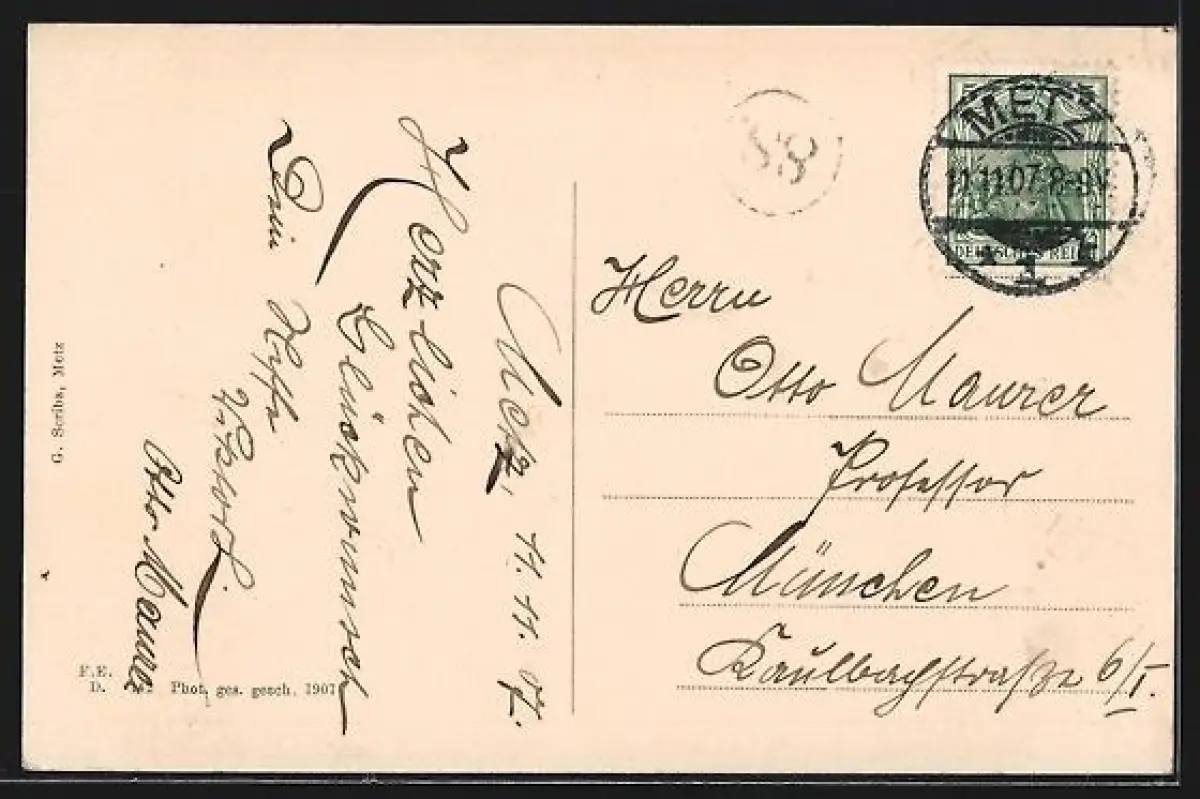 Metz, 11. 11. 07.
Herzlichen
Glückwunsch
Dein
Otto Maurer
G. Scriba, Metz
F. E.
D. Phot. ges. gesch. 1907
METZ
11.11.07.8-9V
* 1 *
DEUTSCHES REICH
Herrn
Otto Maurer
Professor
München
Kaulbachstraße 6/I.